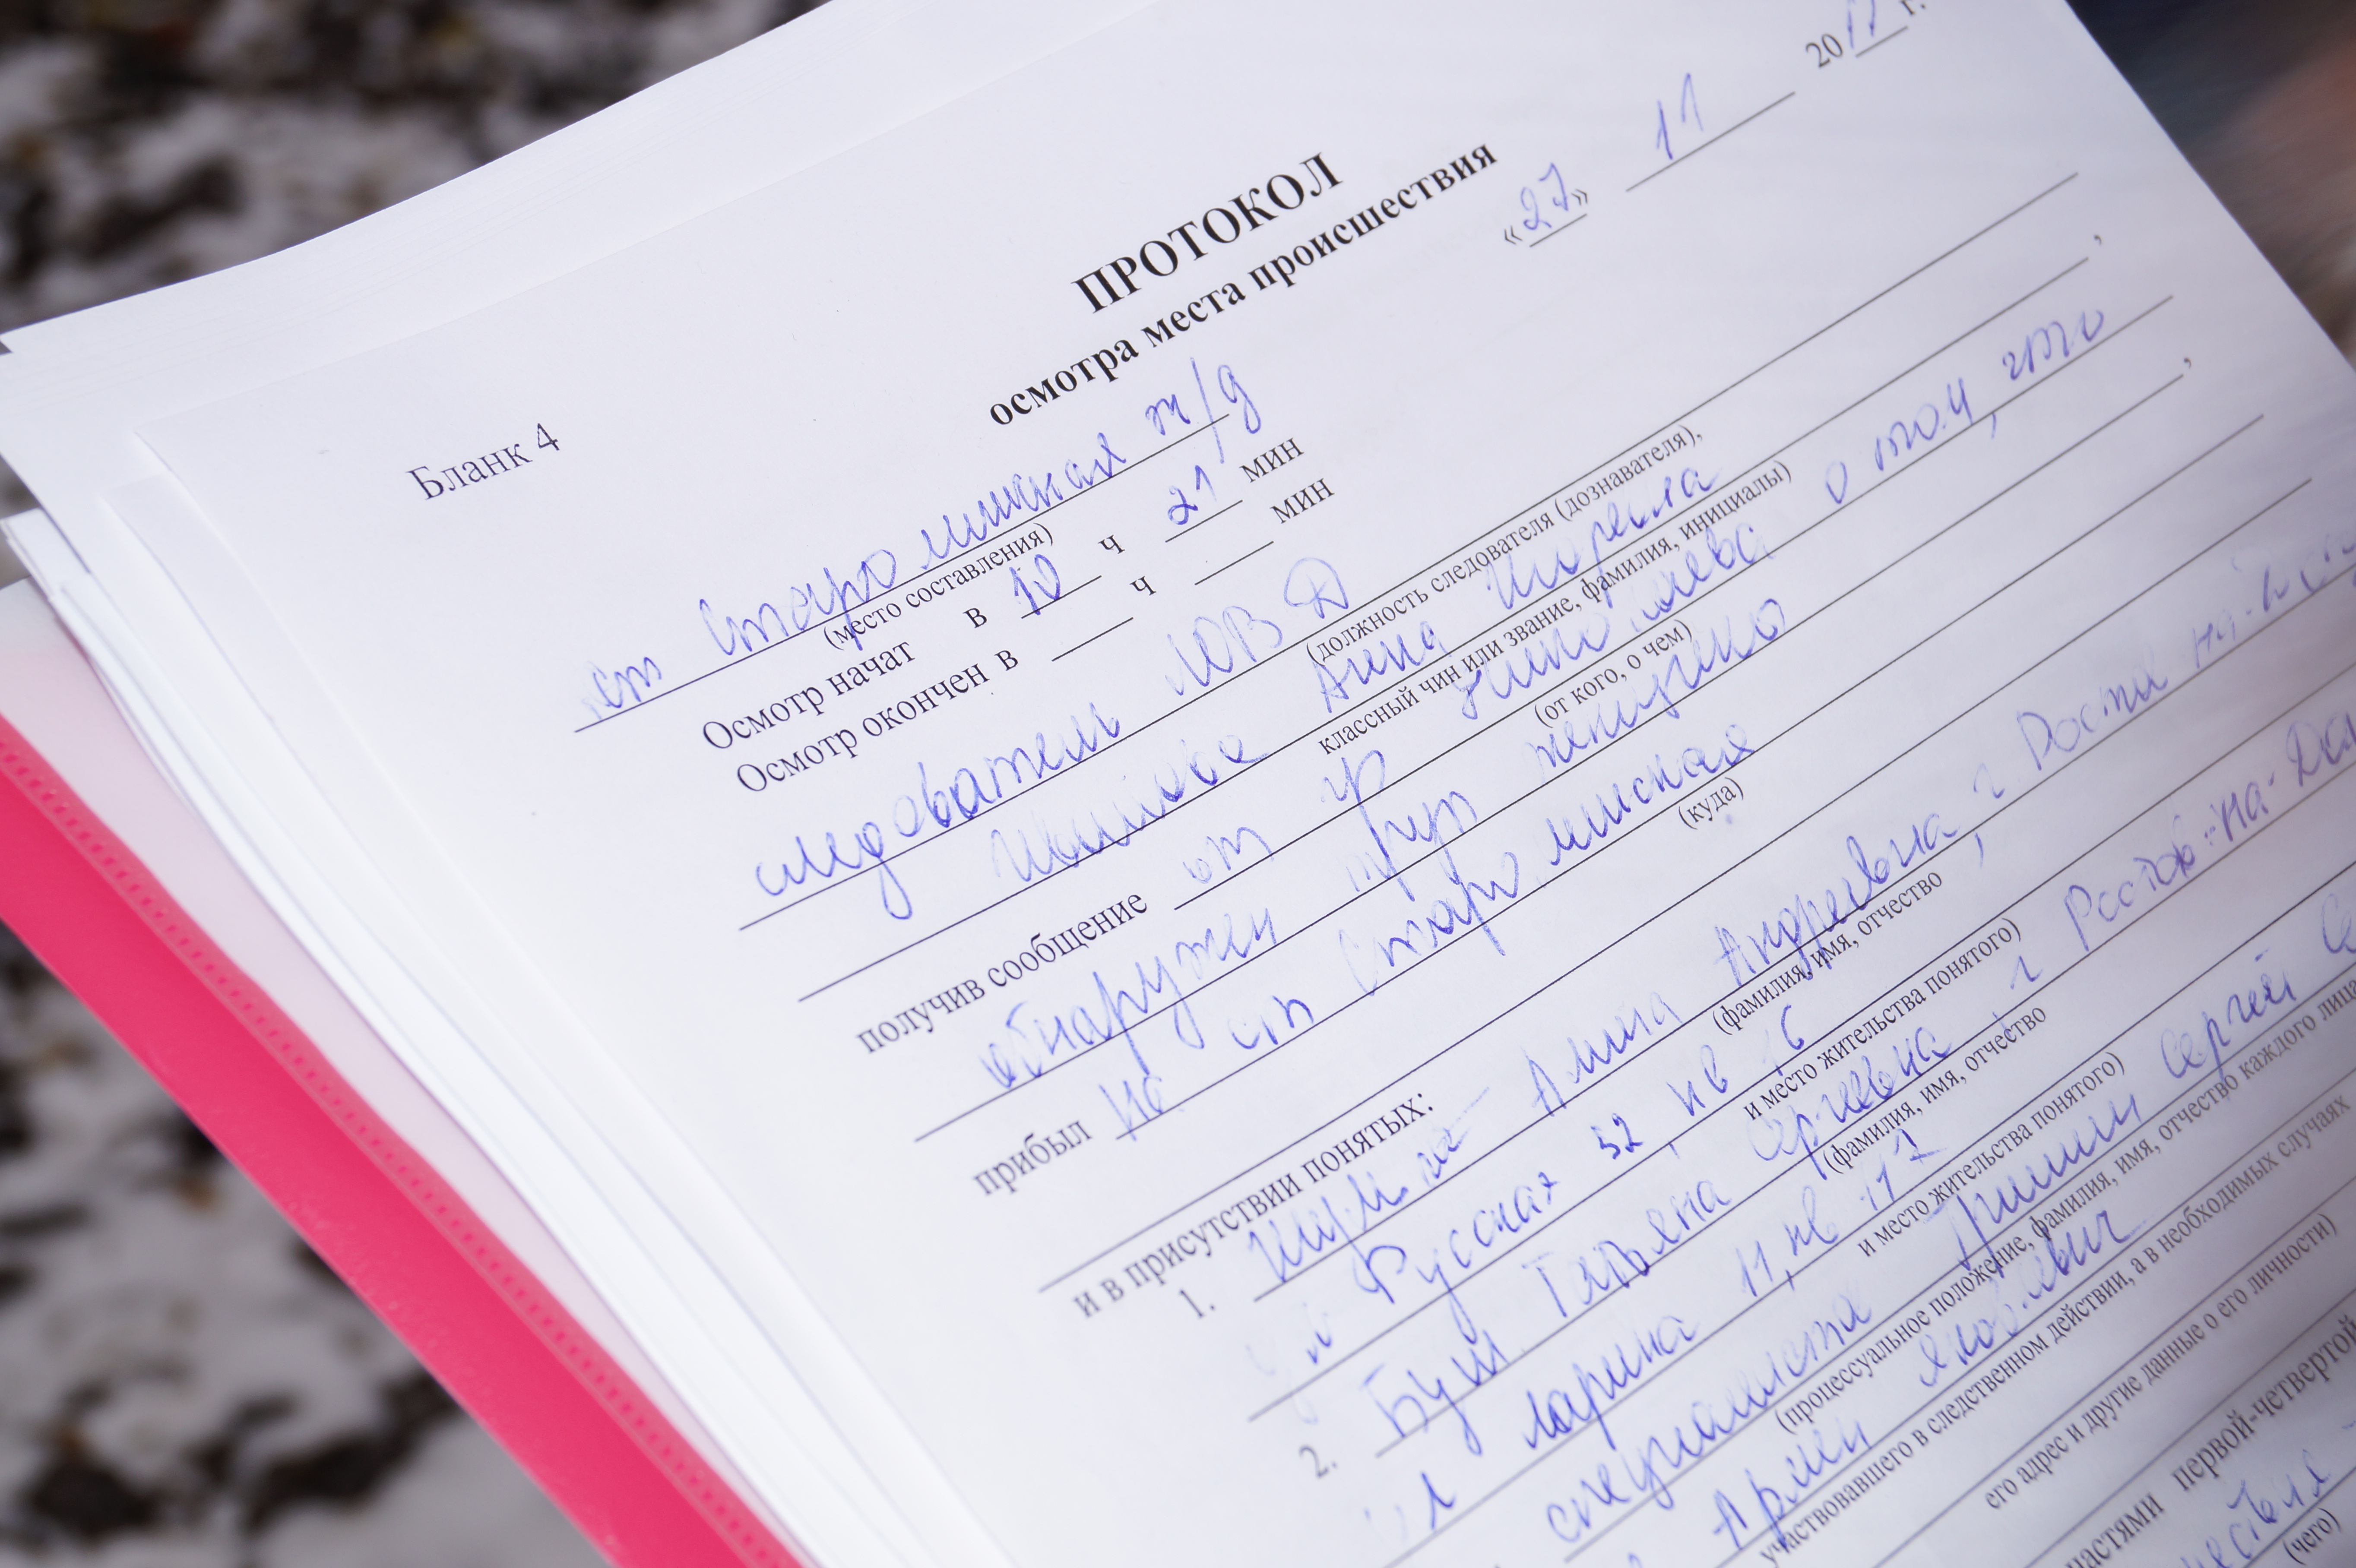 Бланк 4
ПРОТОКОЛ
осмотра места происшествия
«27» 11 20 г.
ст Староминская
(место составления)
Осмотр начат в 10 ч 21 мин
Осмотр окончен в ч мин
следователь
(должность следователя (дознавателя),
Анна
классный чин или звание, фамилия, инициалы)
получив сообщение от гр о том, что
(от кого, о чем)
обнаружен труп
прибыл на ст Староминская
(куда)
и в присутствии понятых:
1. Алина Андреевна, г.
(фамилия, имя, отчество
ул Русская 52 кв 16
и место жительства понятого)
2. Буш Татьяна г Ростов-на-
(фамилия, имя, отчество
ул Ларина 11, кв 117
и место жительства понятого)
специалиста Сергей
(процессуальное положение, фамилия, имя, отчество каждого лица,
Армен Яковлевич
участвовавшего в следственном действии, а в необходимых случаях
его адрес и другие данные о его личности)
частями первой-четвертой
(чего)